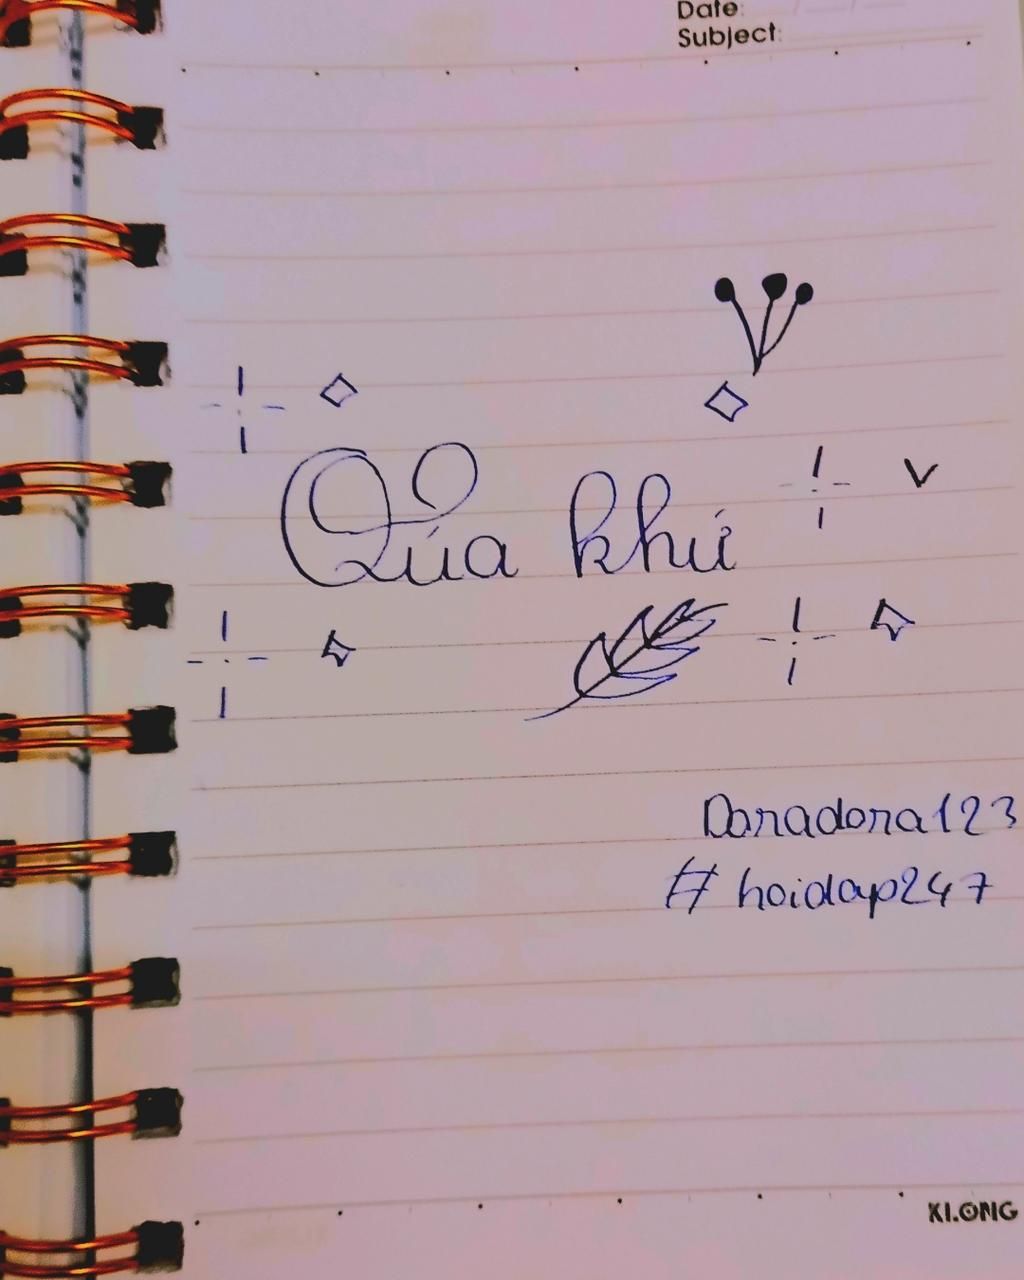 Date:
Subject:
Qúa khứ
Doradora123
#hoidap247
KLONG